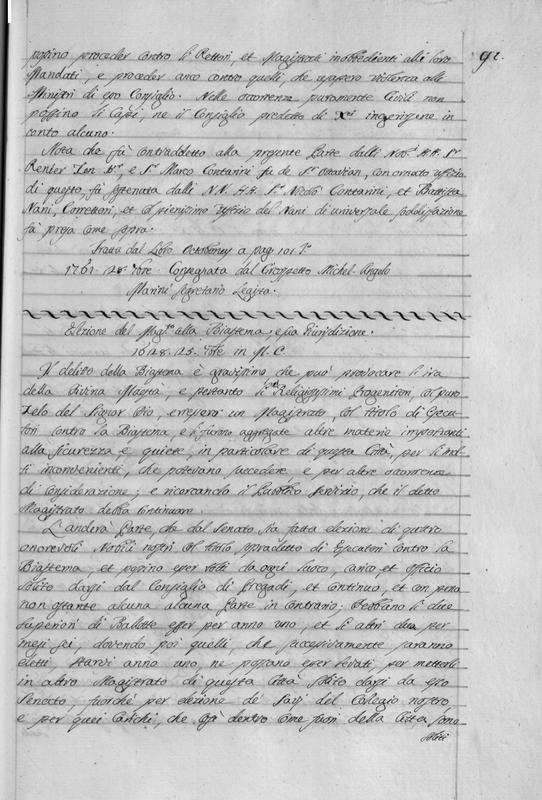 92.
possino proceder contro li Rettori, et Magistrati inobbedienti alli loro
Mandati, e proceder anco contro quelli che usassero violenza alli
Ministri di esso Consiglio. Nelle occorrenze puramente Civili non
possino li Capi, ne il Consiglio predetto di X.ci ingerirsene in
conto alcuno.
Nota che fù contraddetto alla presente Parte dalli Nob. H.H. Sr
Renier Zen Kr., e Sr Marco Contarini fu de Sr Ottavian, con ornato ufficio
di questo, fù sostenata dalli N.N. H.H. Sr Nicolò Contarini, et Battista
Nani, Correttori, et col pienissimo Uffizio del Nani di universale sodisfazione
fù presa come sopra.
Tratta dal Libro Octobonus a pag. 101 Tº
1761. 28. 9bre. Consegnata dal Circospetto Michel Angelo
Marini Segretario Legista.
Elezione del Mag.to alla Biastema, e sua Giurisdizione.
1628. 25. 7bre in M. C.
Il delitto della Biastema è gravissimo che può provocare li ira
della Divina Maestà, e pertanto li Religiosissimi Progenitori, col puro
Zelo del Signor Dio, eressero un Magistrato, col titolo di Essecu
tori contro la Biastema, e li furono aggregate altre materie importanti
alla sicurezza e quiete, in particolare di questa Città, per li mol
ti inconvenienti, che potevano succedere e per altre occorrenze
di Considerazione; e ricercando il Pubblico Servizio, che il detto
Magistrato debba Continuare.
L'anderà Parte, che dal Senato sia fatta elezione di quattro
onorevoli Nobili nostri col titolo sopradetto di Esecutori Contro la
Biastema, et possino esser tolti da ogni luoco, carico et officio
solito darsi dal Consiglio di Pregadi, et Continuo, et con pena
non ostante alcuna alcuna Parte in Contrario; Debbano li due
superiori di Ballotte esser per anno uno, et li altri due per
mesi sei, dovendo poi quelli, che successivamente saranno
eletti starvi anno uno, ne possano esser levati per metterli
in altro Magistrato di questa Città solito darsi da esso
Senato, fuorchè per elezione de' Savj del Colegio nostro,
e per quei Carichi, che così dentro come fuori della Città sono
soliti